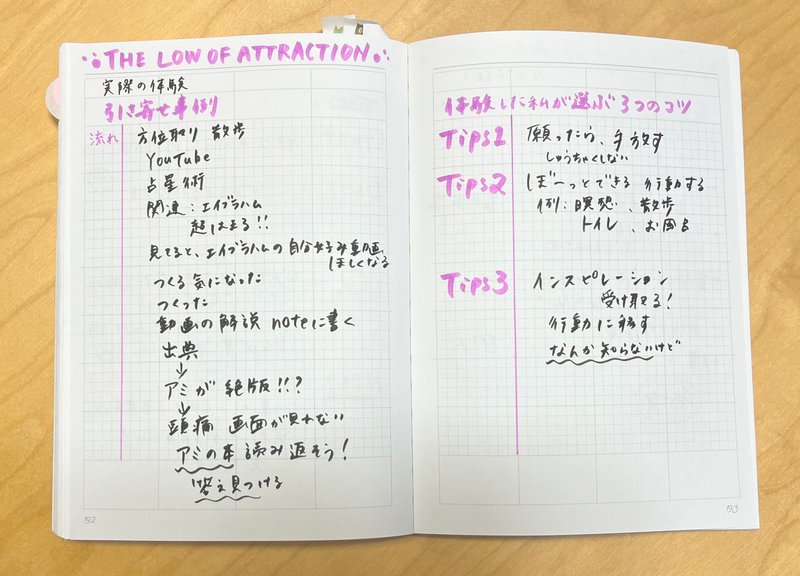 THE LOW OF ATTRACTION
実際の体験
引き寄せ事例
流れ
方位取り 散歩
YouTube
占星術
関連:エイブラハム
超はまる!!
見てると、エイブラハムの自分好み動画
ほしくなる
つくる気になった
つくった
動画の解説 noteに書く
出典
↓
アミが 絶版!!?
↓
頭痛 画面が見れない
アミの本 読み返そう!
答え見つける
192
体験した私が選ぶ3つのコツ
Tips1 願ったら、手放す
しゅうちゃくしない
Tips2 ぼーっとできる 行動する
例:瞑想、散歩
トイレ、お風呂
Tips3 インスピレーション
受け取る!
行動に移す
なんか知らないけど
193